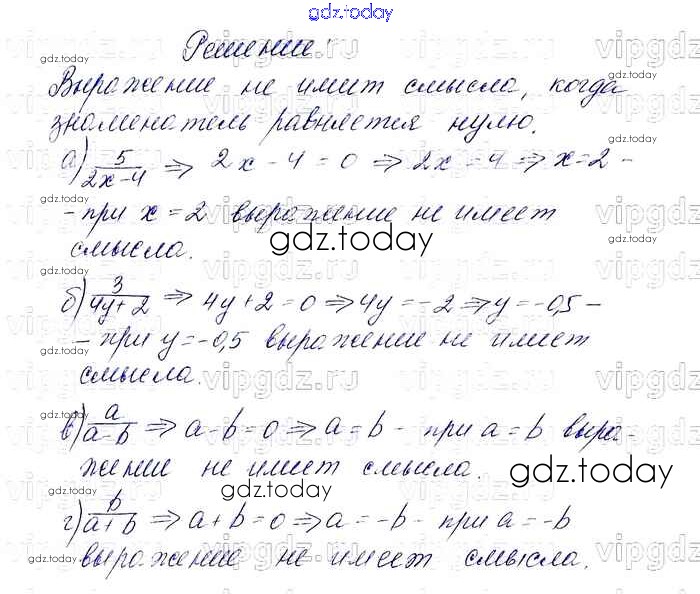 gdz.today
Решение:
Выражение не имеет смысла, когда
знаменатель равняется нулю.
а) 5/(2x-4) ⇒ 2x - 4 = 0 ⇒ 2x = 4 ⇒ x = 2 -
- при x = 2 выражение не имеет
смысла.
gdz.today
б) 3/(4y+2) ⇒ 4y + 2 = 0 ⇒ 4y = -2 ⇒ y = -0,5 -
- при y = -0,5 выражение не имеет
смысла.
в) a/(a-b) ⇒ a - b = 0 ⇒ a = b - при a = b выра-
жение не имеет смысла.
gdz.today
г) b/(a+b) ⇒ a + b = 0 ⇒ a = -b - при a = -b
выражение не имеет смысла.
vipgdz.ru